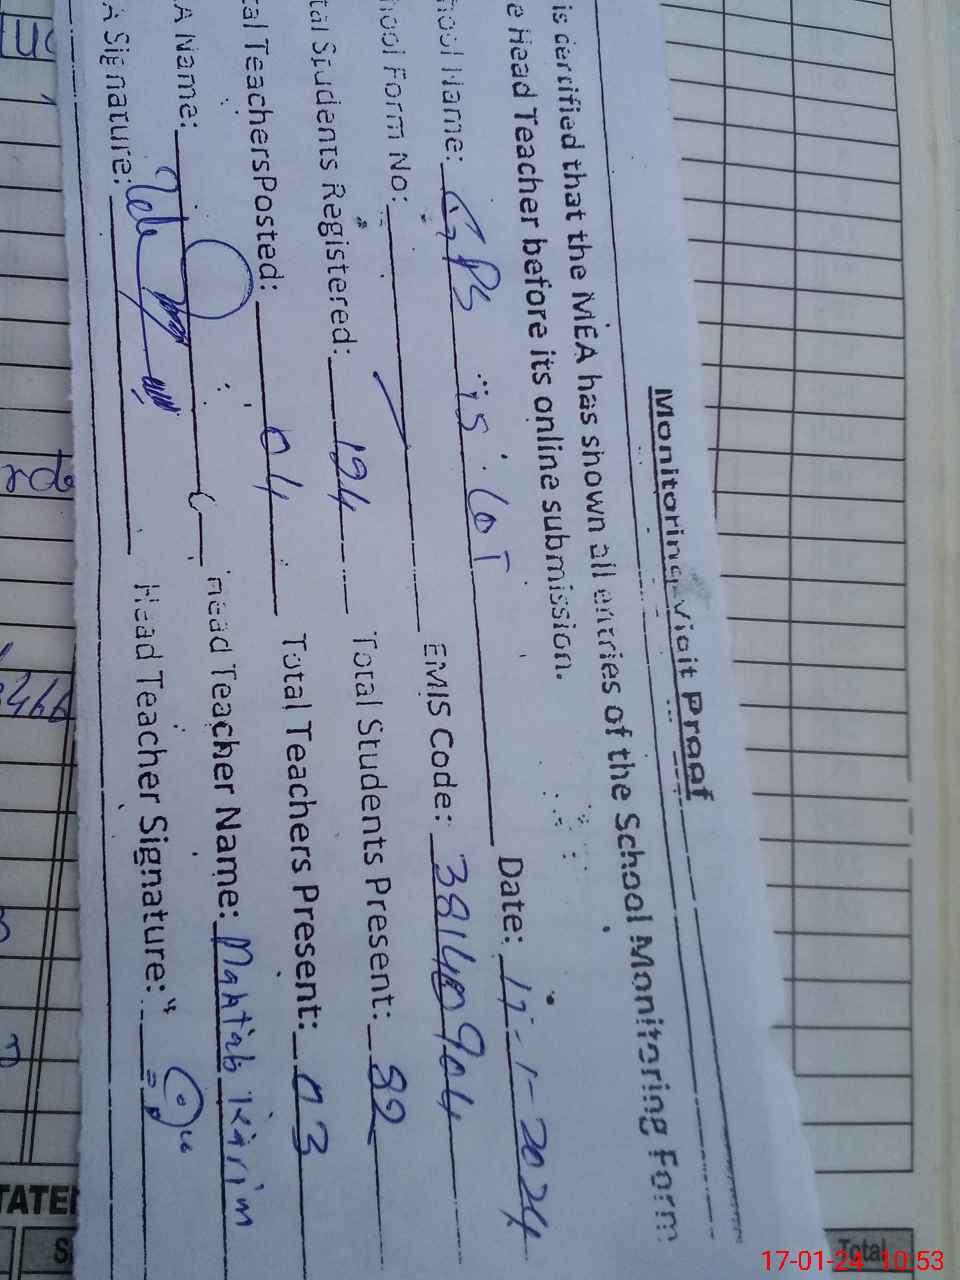 Monitoring Visit Proof
is certified that the MEA has shown all entries of the School Monitoring Form
e Head Teacher before its online submission.
hool Name: GPS Date: 17-1-2024
hool Form No: EMIS Code: 38140904
tal Students Registered: 194 Total Students Present: 89
tal TeachersPosted: 04 Total Teachers Present: 03
A Name: Head Teacher Name: Mahtab Karim
A Signature: Head Teacher Signature:
TATE
Total
17-01-24 10:53